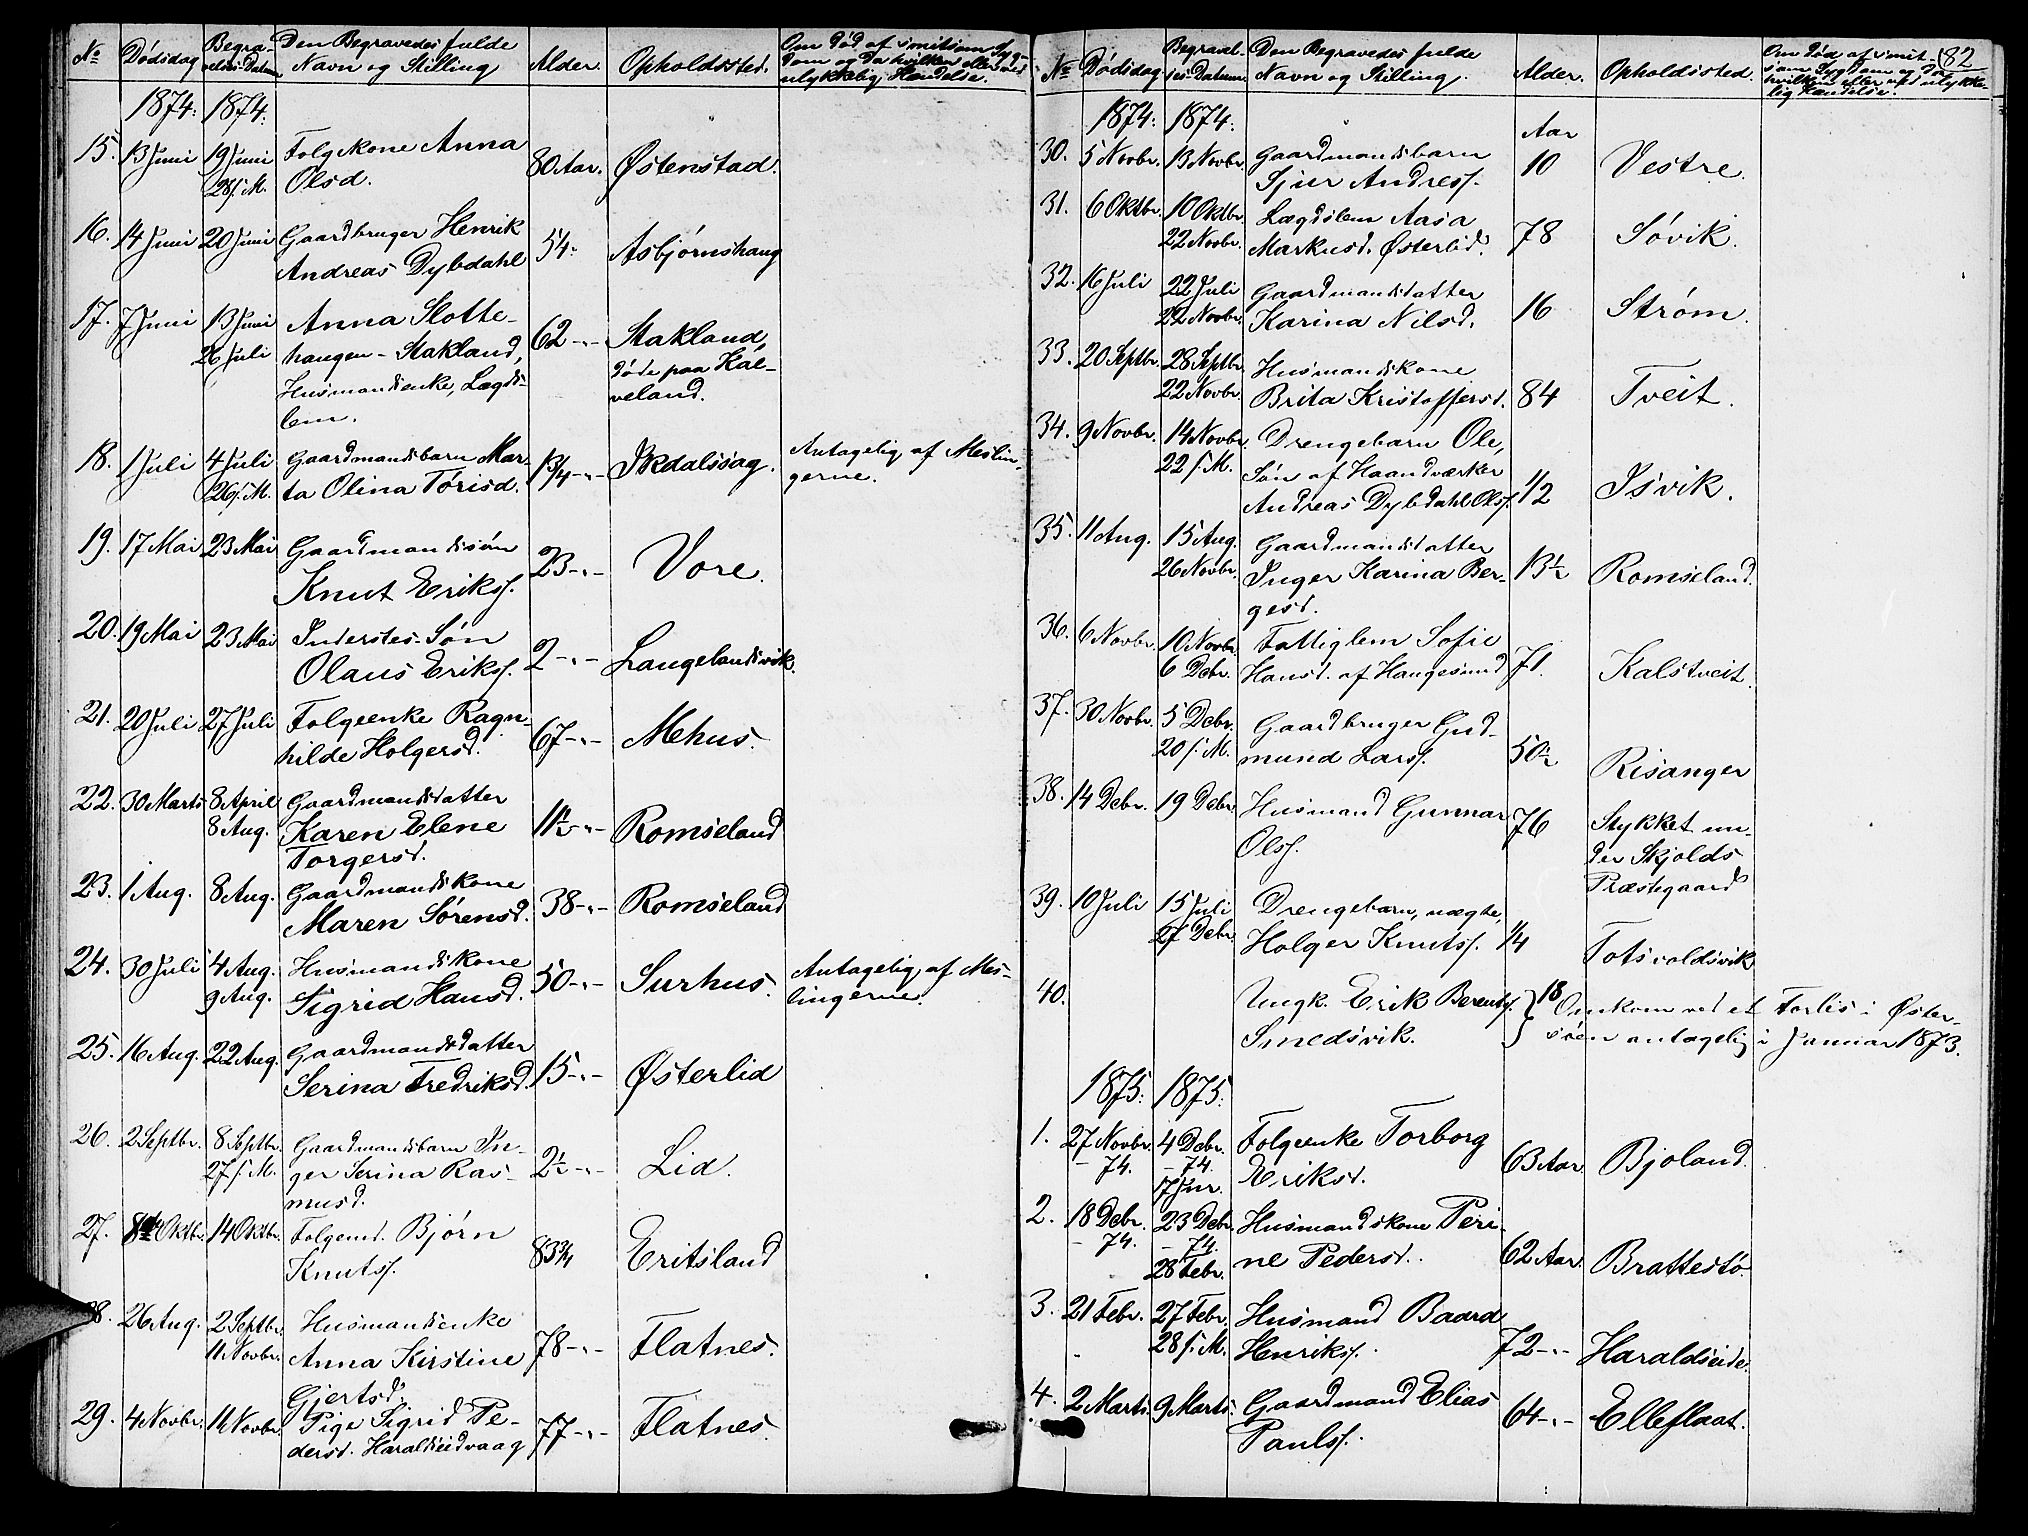 No Dødsdag Begra- Den Begravedes fulde Alder. Opholdssted. Om død af smitsom Syg-
velses Datum Navn og Stilling dom og da hvilken eller ved
ulykkelig Hændelse.
1874: 1874:
15. 13 Juni 19 Juni Folgekone Anna 80 Aar. Østenstad.
28 s. M. Olsd.
16. 14 Juni 20 Juni Gaardbruger Henrik 54: Asbjørnshaug
Andreas Dybdahl
17. 7 Juni 13 Juni Anna Slotte- 62 -„- Stakland,
26 Juli haugen - Stakland, døde paa Kal-
Husmandsenke, Lægds- veland.
lem.
18. 1 Juli 4 Juli Gaardmandsbarn Mar- 1 3/4 -„- Skdalssag. Antagelig af Meslin-
26 s. M. ta Olina Tørisd. gerne.
19. 17 Mai 23 Mai Gaardmandssøn 23 -„- Vore.
Knut Erikss.
20. 19 Mai 23 Mai Inderstes Søn 2 -„- Langelandsvik.
Olaus Erikss.
21. 20 Juli 27 Juli Folgeenke Ragn- 67 -„- Mehus.
hilde Holgersd.
22. 30 Marts 8 April Gaardmandsdatter 11 1/2 -„- Romseland
8 Aug. Karen Elene
Torgersd.
23. 1 Aug. 8 Aug. Gaardmandskone 38 -„- Romseland
Maren Sørensd.
24. 30 Juli 4 Aug. Husmandskone 50 -„- Surhus. Antagelig af Mes-
9 Aug. Sigrid Hansd. lingerne.
25. 16 Aug. 22 Aug. Gaardmandsdatter 15 -„- Østerlid
Serina Fredriksd.
26. 2 Septbr. 8 Septbr. Gaardmandsbarn In- 2 1/2 -„- Lid.
27 s. M. ger Serina Ras-
musd.
27. 8 Oktbr. 14 Oktbr. Folgemd. Bjørn 83 3/4 Eritsland
Knutss.
28. 26 Aug. 2 Septbr. Husmandsenke 78 -„- Flatnes.
11 Novbr. Anna Kirstine
Gjertsd.
29. 4 Novbr. 11 Novbr. Pige Sigrid Pe- 77 -„- Flatnes.
dersd. Haraldseidvaag
82
No Dødsdag Begravel- Den Begravedes fulde Alder. Opholdssted. Om død af smit-
ses Datum Navn og Stilling. som Sygdom og da
hvilken eller ved ulykke-
lig Hændelse.
1874: 1874: Aar
30. 5 Novbr. 13 Novbr. Gaardmandsbarn 10 Vestre.
Sjur Andress.
31. 6 Oktbr. 10 Oktbr. Lægdslem Aasa 78 Søvik.
22 Novbr. Markusd. Østerlid.
32. 16 Juli 22 Juli Gaardmandsdatter 16 Strøm.
22 Novbr. Karina Nilsd.
33. 20 Septbr. 28 Septbr. Husmandskone
22 Novbr. Brita Kristoffersd. 84 Tveit.
34. 9 Novbr. 14 Novbr. Drengebarn Ole,
22 s. M. Søn af Haandværker
Andreas Dybdahl Olss. 1/2 Isvik.
35. 11 Aug. 15 Aug. Gaardmandsdatter
26 Novbr. Inger Karina Ber- 13 1/2 Romseland.
gesd.
36. 6 Novbr. 10 Novbr. Fattiglem Sofie
6 Debr. Hansd. af Haugesund 71. Kalstveit.
37. 30 Novbr. 5 Debr. Gaardbruger Gud-
20 s. M. mund Larss. 50 1/2 Risanger
38. 14 Debr. 19 Debr. Husmand Gunnar 76 Stykket un-
Olss. der Skjolds
Præstegaard
39. 10 Juli 15 Juli Drengebarn, uægte,
27 Debr. Holger Knutss. 1/4 Totsvoldsvik
40. Ungk. Erik Berents. } 18 Omkom ved et Forlis i Øster-
Smedsvik. søen antagelig i Januar 1873.
1875: 1875:
1. 27 Novbr. 4 Debr. Folgeenke Torborg
- 74. - 74. Eriksd. 63 Aar Bjoland.
17 Jnr.
2. 18 Debr. 23 Debr. Husmandskone Peri-
- 74. - 74. ne Pedersd. 62 Aar. Brattestø.
28 Febr.
3. 21 Febr. 27 Febr. Husmand Baard
28 s. M. Henrikss. 72 -„- Haraldseide.
4. 2 Marts 9 Marts. Gaardmand Elias 64 -„- Elleflaat.
Paulss.